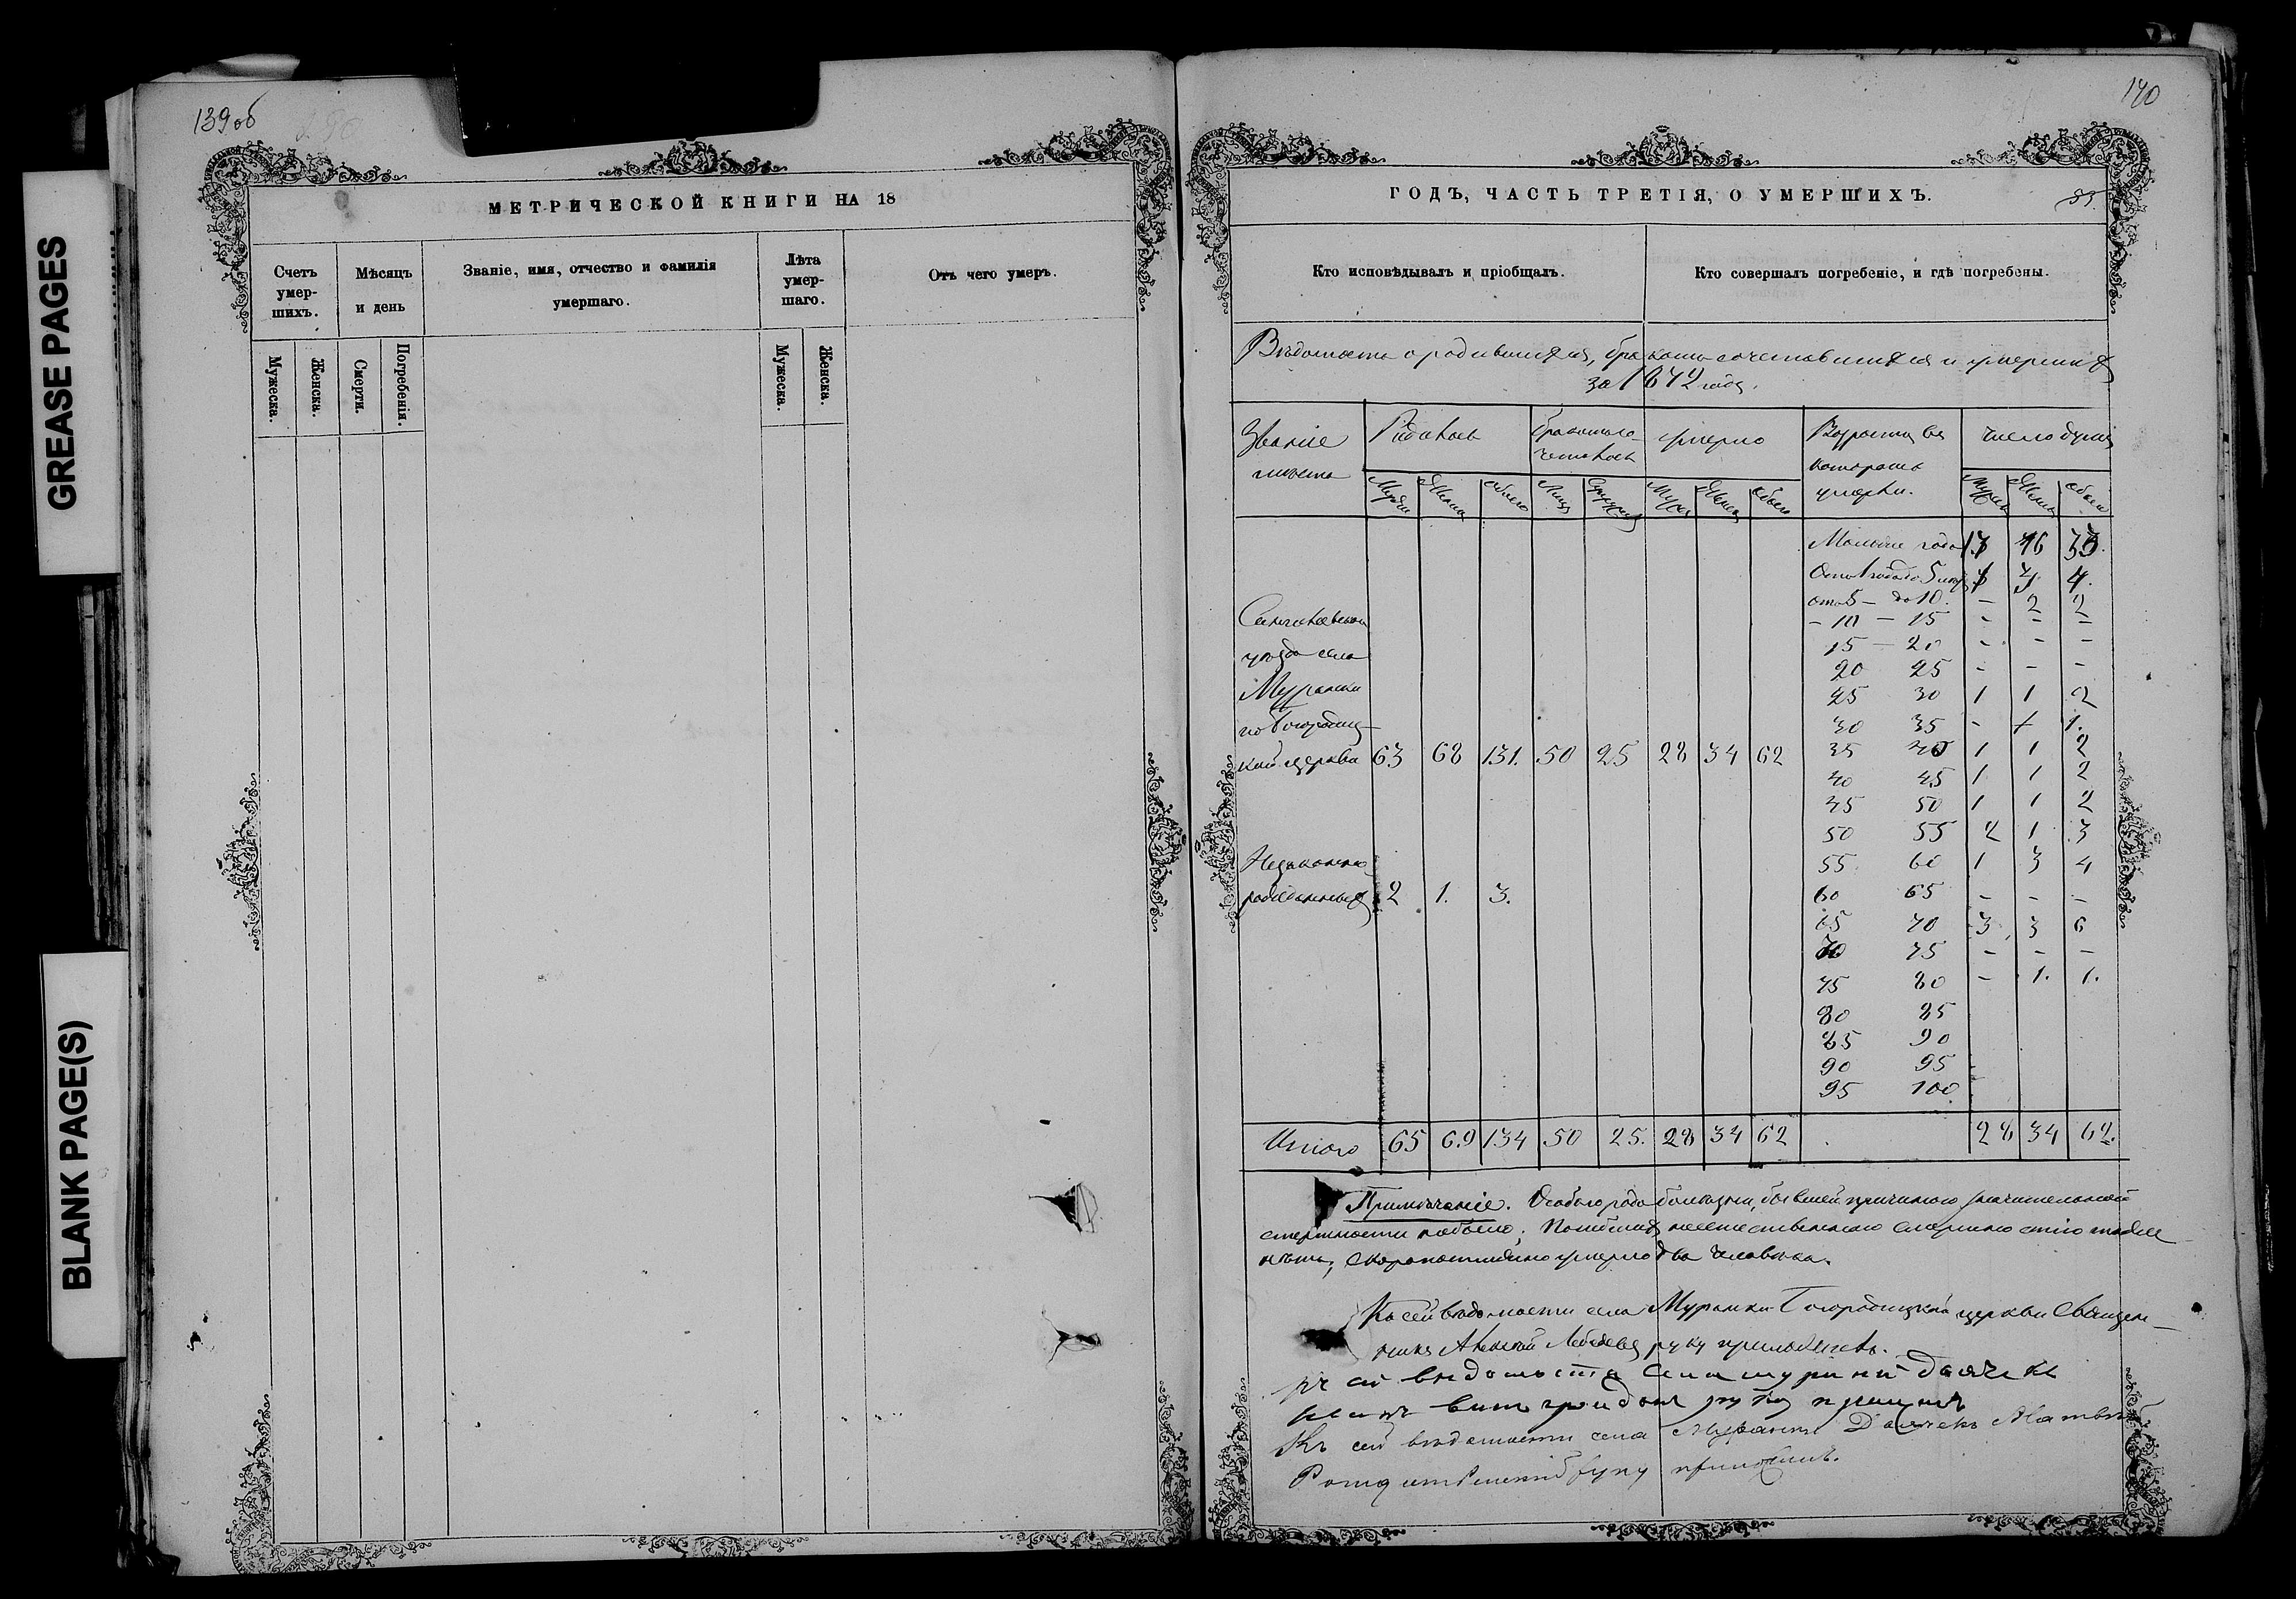 GREASE PAGES
BLANK PAGE(S)
139 об
МЕТРИЧЕСКОЙ КНИГИ НА 18
Счетъ умер-
шихъ.
Мѣсяцъ
и день
Званіе, имя, отчество и фамилія
умершаго.
Лѣта
умер-
шаго.
Отъ чего умеръ.
Мужеска.
Женска.
Смерти.
Погребенія.
Мужеска.
Женска.
140
ГОДЪ, ЧАСТЬ ТРЕТІЯ, О УМЕРШИХЪ.
Кто исповѣдывалъ и пріобщалъ.
Кто совершалъ погребеніе, и гдѣ погребены.
Вѣдомость о родившихся, бракомъ сочетавшихся и умершихъ
за 1872 годъ.
Званіе
мѣста
Родилось
Бракомъ со-
четалось
умерло
Возрастъ въ
которомъ
умерли.
число душъ
Муж Женск обоего Лицъ Супруж Муж Женск обоего Муж Женск обоего
Меньше года 16
Отъ 1 года до 5 4.
отъ 5 – до 10. – 2 2
– 10 – 15 – – –
15 – 20 – – –
20 25 – – –
25 30 1 1 2
30 35 – 1 1.
35 40 1 1 2
40 45 1 1 2
45 50 1 1 2
50 55 2 1 3
55 60 1 3 4
60 65 – – –
65 70 3 3 6
70 75 – – –
75 80 – 1. 1.
80 85
85 90
90 95
95 100
уѣзда села
Муранки
Богородиц-
кой церкви 63 68 131. 50 25 28 34 62
Незаконно
рожденныхъ 2 1. 3.
Итого 65 69 134 50 25. 28 34 62 28 34 62.
Примѣчаніе. Особаго рода болѣзни, бывшей причиною значительной
смертности не было; Погибшихъ неестественною смертію также
нѣтъ; скоропостижно умерло два человѣка.
Къ сей вѣдомости села Муранки Богородицкой церкви Священ-
никъ Алексѣй Лебедевъ руку приложилъ.
сей вѣдомости села муранки дьячекъ
руку
Къ сей вѣдомости села Муранки Дьячекъ Матвѣй
Рождественскій руку приложилъ.